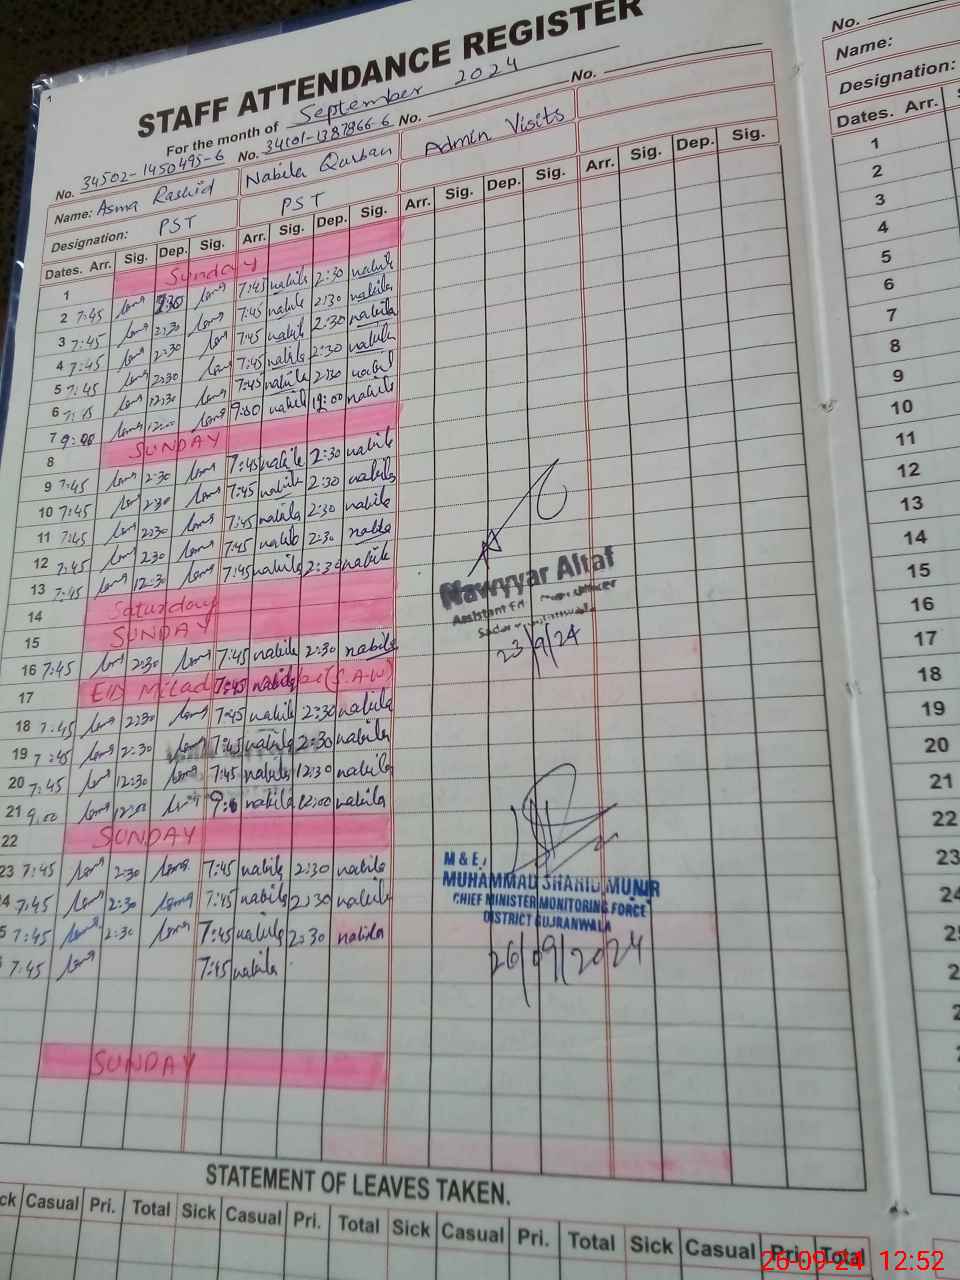 1
STAFF ATTENDANCE REGISTER
For the month of September 2024
No. 34502-1450495-6 No. 34101-1387866-6 No. No.
Name: Asma Rashid Nabila Qurban Admin Visits
Designation: PST PST
Dates. Arr. Sig. Dep. Sig. Arr. Sig. Dep. Sig. Arr. Sig. Dep. Sig. Arr. Sig. Dep. Sig.
1 Sunday
2 7:45 2:30 7:45 nabila 2:30 nabila
3 7:45 2:30 7:45 nabila 2:30 nabila
4 7:45 2:30 7:45 nabila 2:30 nabila
5 7:45 2:30 7:45 nabila 2:30 nabila
6 7:45 12:30 7:45 nabila 2:30 nabila
7 9:00 12:00 9:00 nabila 12:00 nabila
8 SUNDAY
9 7:45 2:30 7:45 nabila 2:30 nabila
10 7:45 2:30 7:45 nabila 2:30 nabila
11 7:45 2:30 7:45 nabila 2:30 nabila
12 7:45 2:30 7:45 nabila 2:30 nabila
13 7:45 12:30 7:45 nabila 2:30 nabila
14 Saturday
15 SUNDAY
16 7:45 2:30 7:45 nabila 2:30 nabila
17 EID Milad 7:45 nabila (S.A.W)
18 7:45 2:30 7:45 nabila 2:30 nabila
19 7:45 2:30 7:45 nabila 2:30 nabila
20 7:45 12:30 7:45 nabila 12:30 nabila
21 9:00 12:00 nabila 12:00 nabila
22 SUNDAY
23 7:45 2:30 7:45 nabila 2:30 nabila
4 7:45 2:30 7:45 nabila 2:30 nabila
5 7:45 2:30 7:45 nabila 2:30 nabila
7:45 7:45 nabila
SUNDAY
Nawyyar Altaf
Assistant Officer
23/9/24
M & E,
MUHAMMAD SHAHID MUNIR
CHIEF MINISTER MONITORING FORCE
DISTRICT GUJRANWALA
26/09/2024
STATEMENT OF LEAVES TAKEN.
ck Casual Pri. Total Sick Casual Pri. Total Sick Casual Pri. Total Sick Casual Pri. Total
No.
Name:
Designation:
Dates. Arr.
1
2
3
4
5
6
7
8
9
10
11
12
13
14
15
16
17
18
19
20
21
22
23
24
25
2
2
26-09-24 12:52